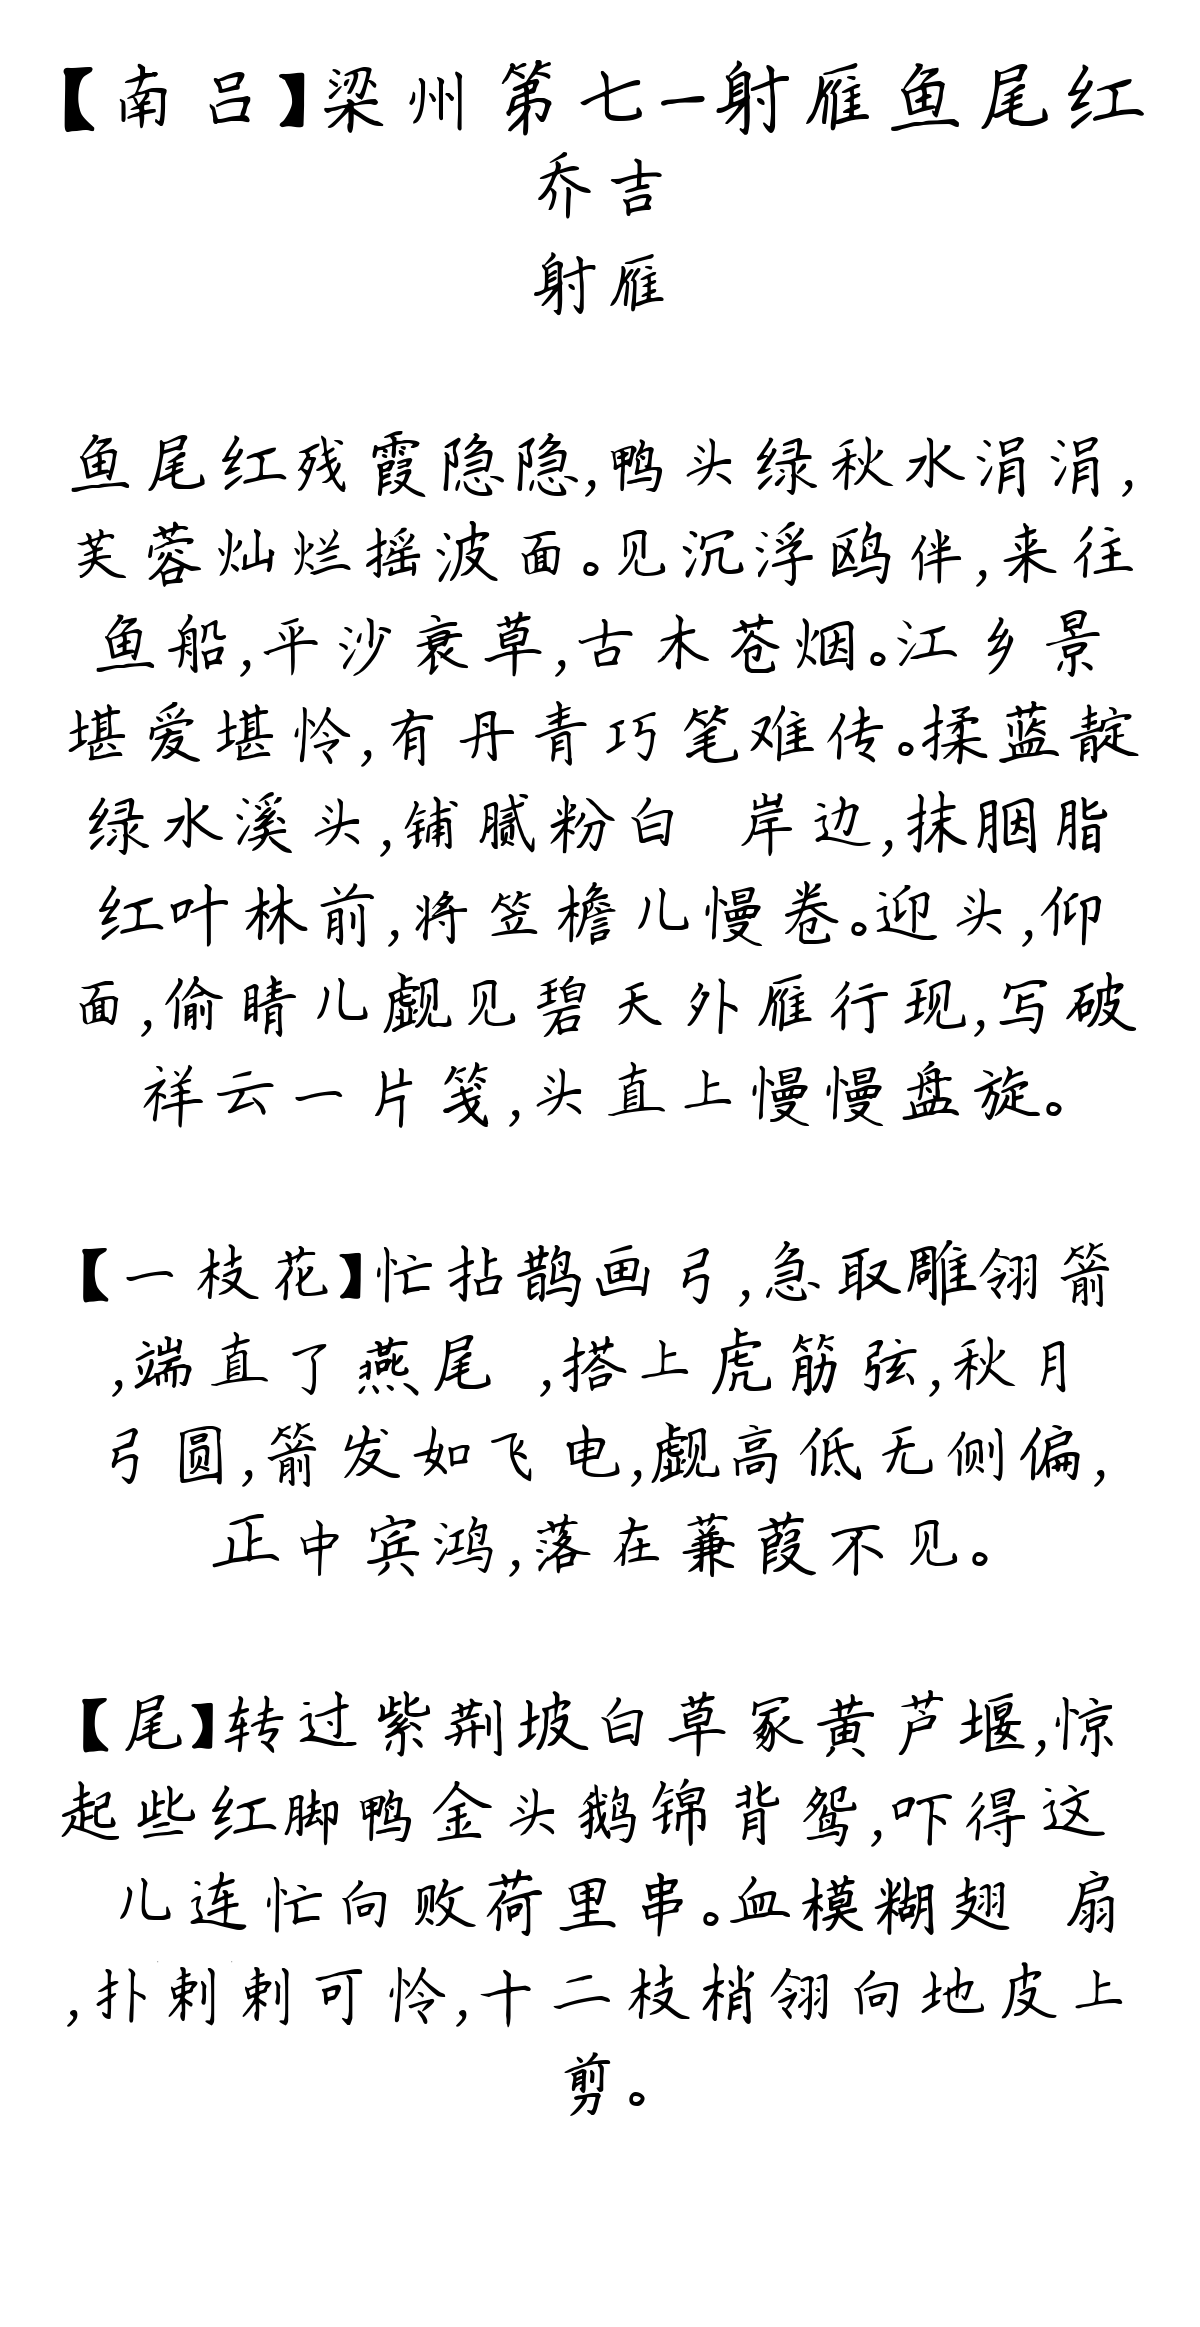 【南吕】梁州第七-射雁鱼尾红
乔吉
射雁
鱼尾红残霞隐隐,鸭头绿秋水涓涓,
芙蓉灿烂摇波面。见沉浮鸥伴,来往
鱼船,平沙衰草,古木苍烟。江乡景
堪爱堪怜,有丹青巧笔难传。揉蓝靛
绿水溪头,铺腻粉白 岸边,抹胭脂
红叶林前,将笠檐儿慢卷。迎头,仰
面,偷睛儿觑见碧天外雁行现,写破
祥云一片笺,头直上慢慢盘旋。
【一枝花】忙拈鹊画弓,急取雕翎箭
,端直了燕尾 ,搭上虎筋弦,秋月
弓圆,箭发如飞电,觑高低无侧偏,
正中宾鸿,落在蒹葭不见。
【尾】转过紫荆坡白草冢黄芦堰,惊
起些红脚鸭金头鹅锦背鸳,吓得这
儿连忙向败荷里串。血模糊翅 扇
,扑剌剌可怜,十二枝梢翎向地皮上
剪。